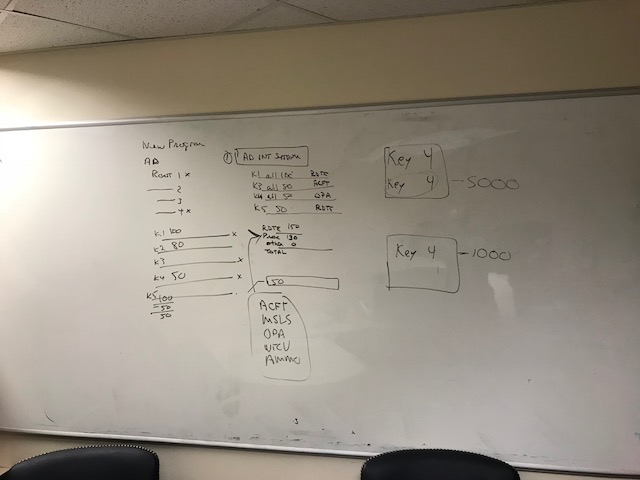 New Program
AD
Root 1 x
2
3
4 x
K1 100 x
K2 80
K3 x
K4 50 x
K5
100
-50
50
① AD INT SYSTEM
K1 all 100 RDTE
K3 all 50 ACFT
K4 all 50 OPA
K5 50 RDTE
RDTE 150
Proc 130
other 0
TOTAL
50
ACFT
MSLS
OPA
WTCV
AMMO
Key 4
Key 4 - 5000
Key 4 - 1000